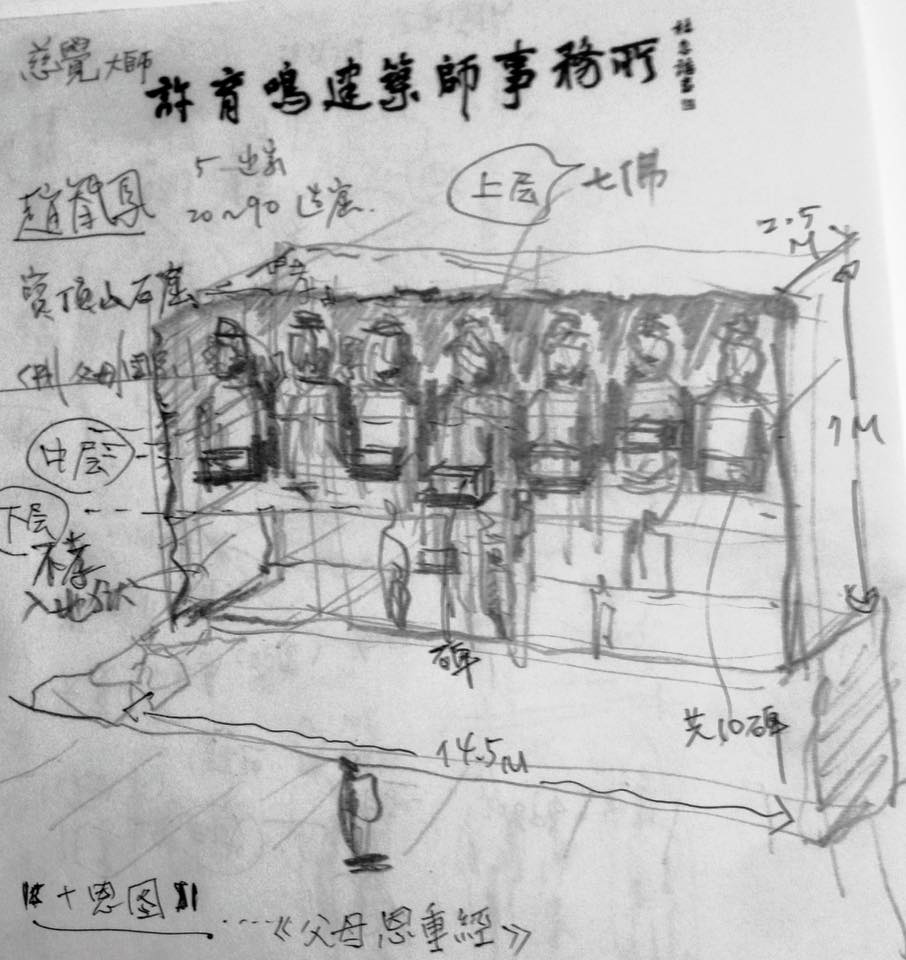 慈覺大師
許育鳴建築師事務所
趙智鳳
5
20~90 造窟
上层
七佛
2.5
M
寶頂山石窟
父母
7M
中层
下层
不孝
入地狱
碑
共10碑
14.5M
十恩图
《父母恩重經》